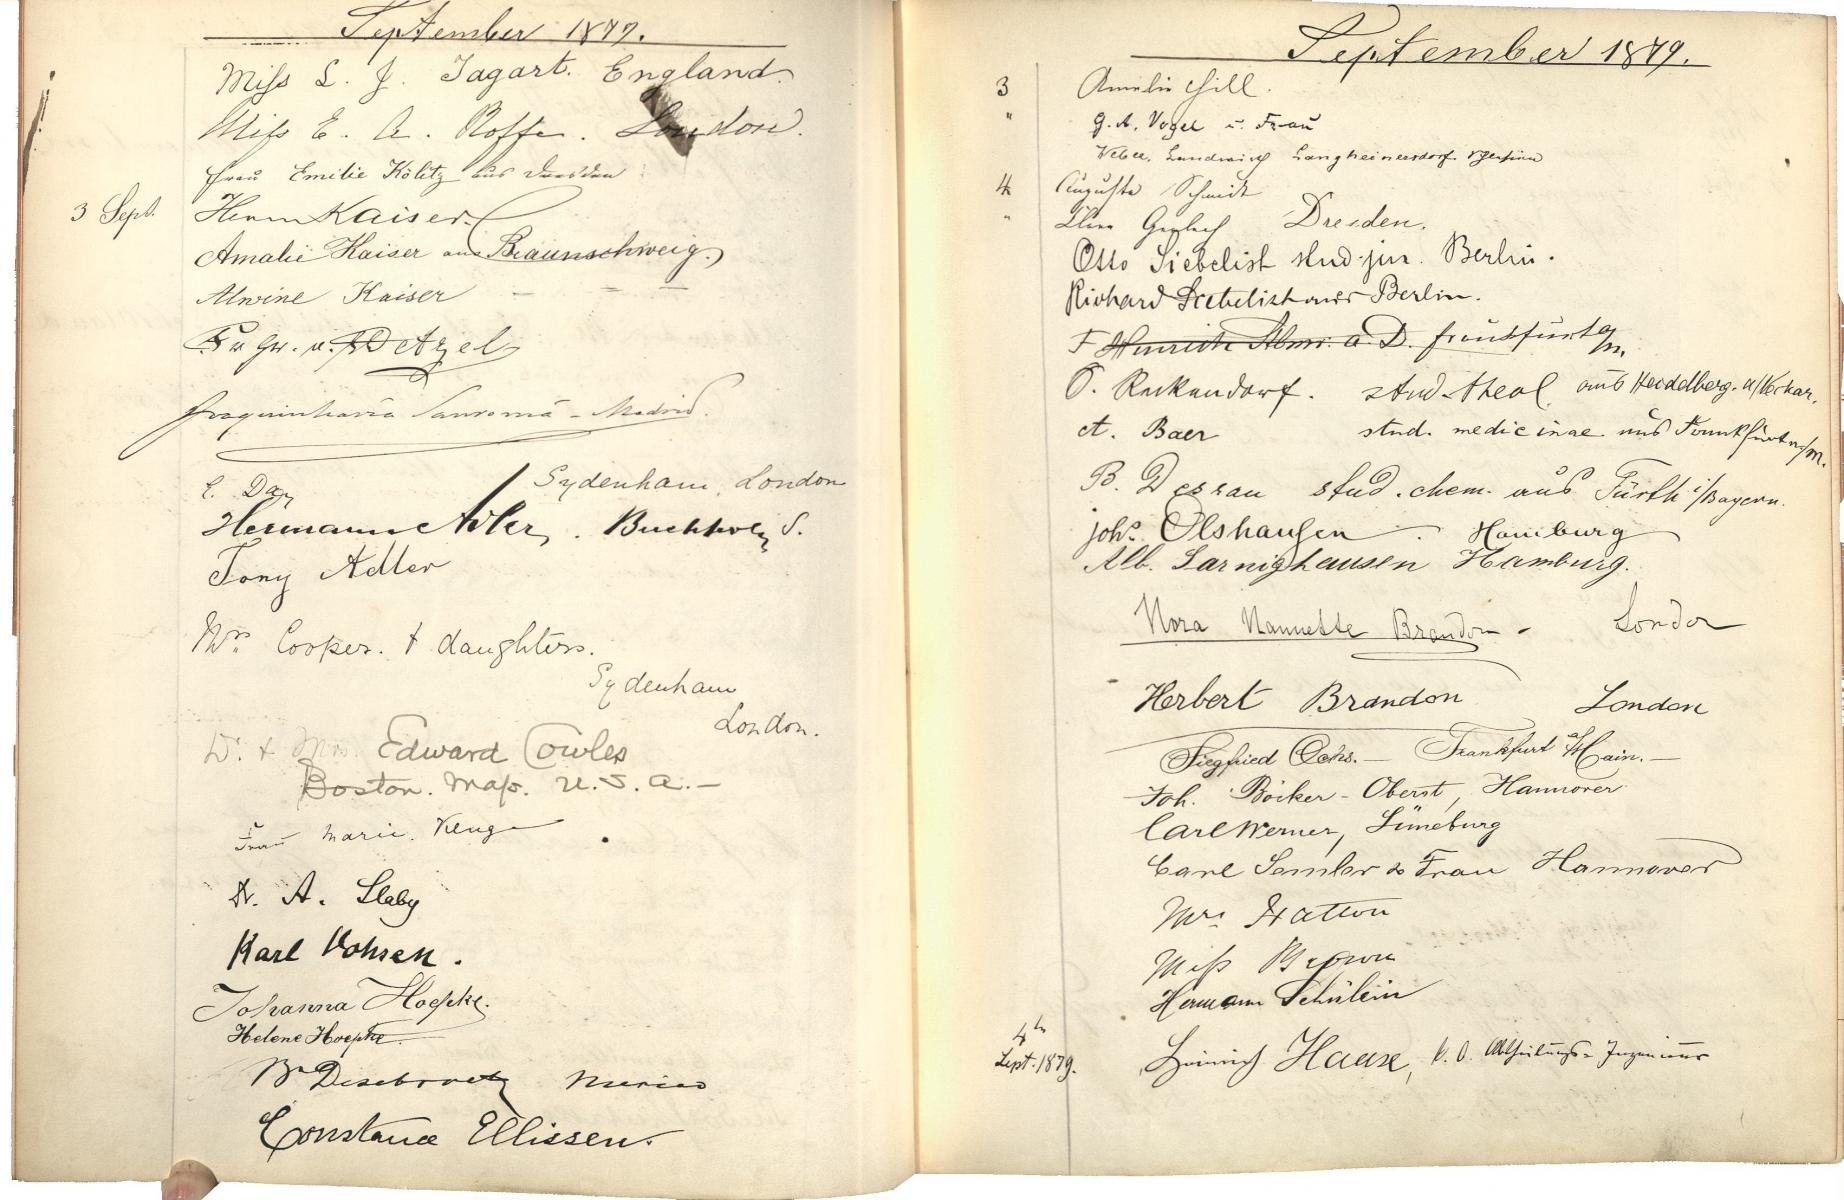 September 1879.
Miſs L. J. Tagart. England
Miſs E. A. Roffe. London.
Frau Emilie Kölitz aus Dresden
3 Sept. Herm Kaiser.
Amalie Kaiser aus Braunschweig.
Alwine Kaiser — — —
Madrid.
E. Day Sydenham, London
Hermann Adler, Buchholz S.
Tony Adler
Mrs Cooper. & daughters.
Sydenham
London.
Dr. & Mrs. Edward Cowles
Boston. Maſs. U.S.A. —
Frau Marie. Kluge
Dr. A. Slaby
Karl Vohsen.
Johanna Hoepke.
Helene Hoepke
Constance Ellissen.
September 1879.
3 Amalie Hill.
" G. A. Vogel u. Frau
4 Auguste Schmidt
" Gerlach Dresden.
Otto Siebelist stud. jur. Berlin.
Richard Siebelist aus Berlin.
F Hinrichs a. D. Frankfurt a/M.
O. Reckendorf. stud. theol. aus Heidelberg. a/Neckar.
A. Baer stud. medicinae aus Frankfurt a/M.
B. Dessau stud. chem. aus Fürth i/Bayern.
Johs. Olshausen. Hamburg
Alb. Sarnighausen Hamburg.
Nora Nannette Brandon - London
Herbert Brandon London
Siegfried Ochs. — Frankfurt a/Main. —
Joh. Böcker - Oberst, Hannover
Carl Werner, Lüneburg
Carl Semler & Frau Hannover
Mrs Hatton
Miſs Brown
Hermann Schülein
4th
Sept. 1879. Heinrich Haase, K. O. Abtheilungs-Ingenieur